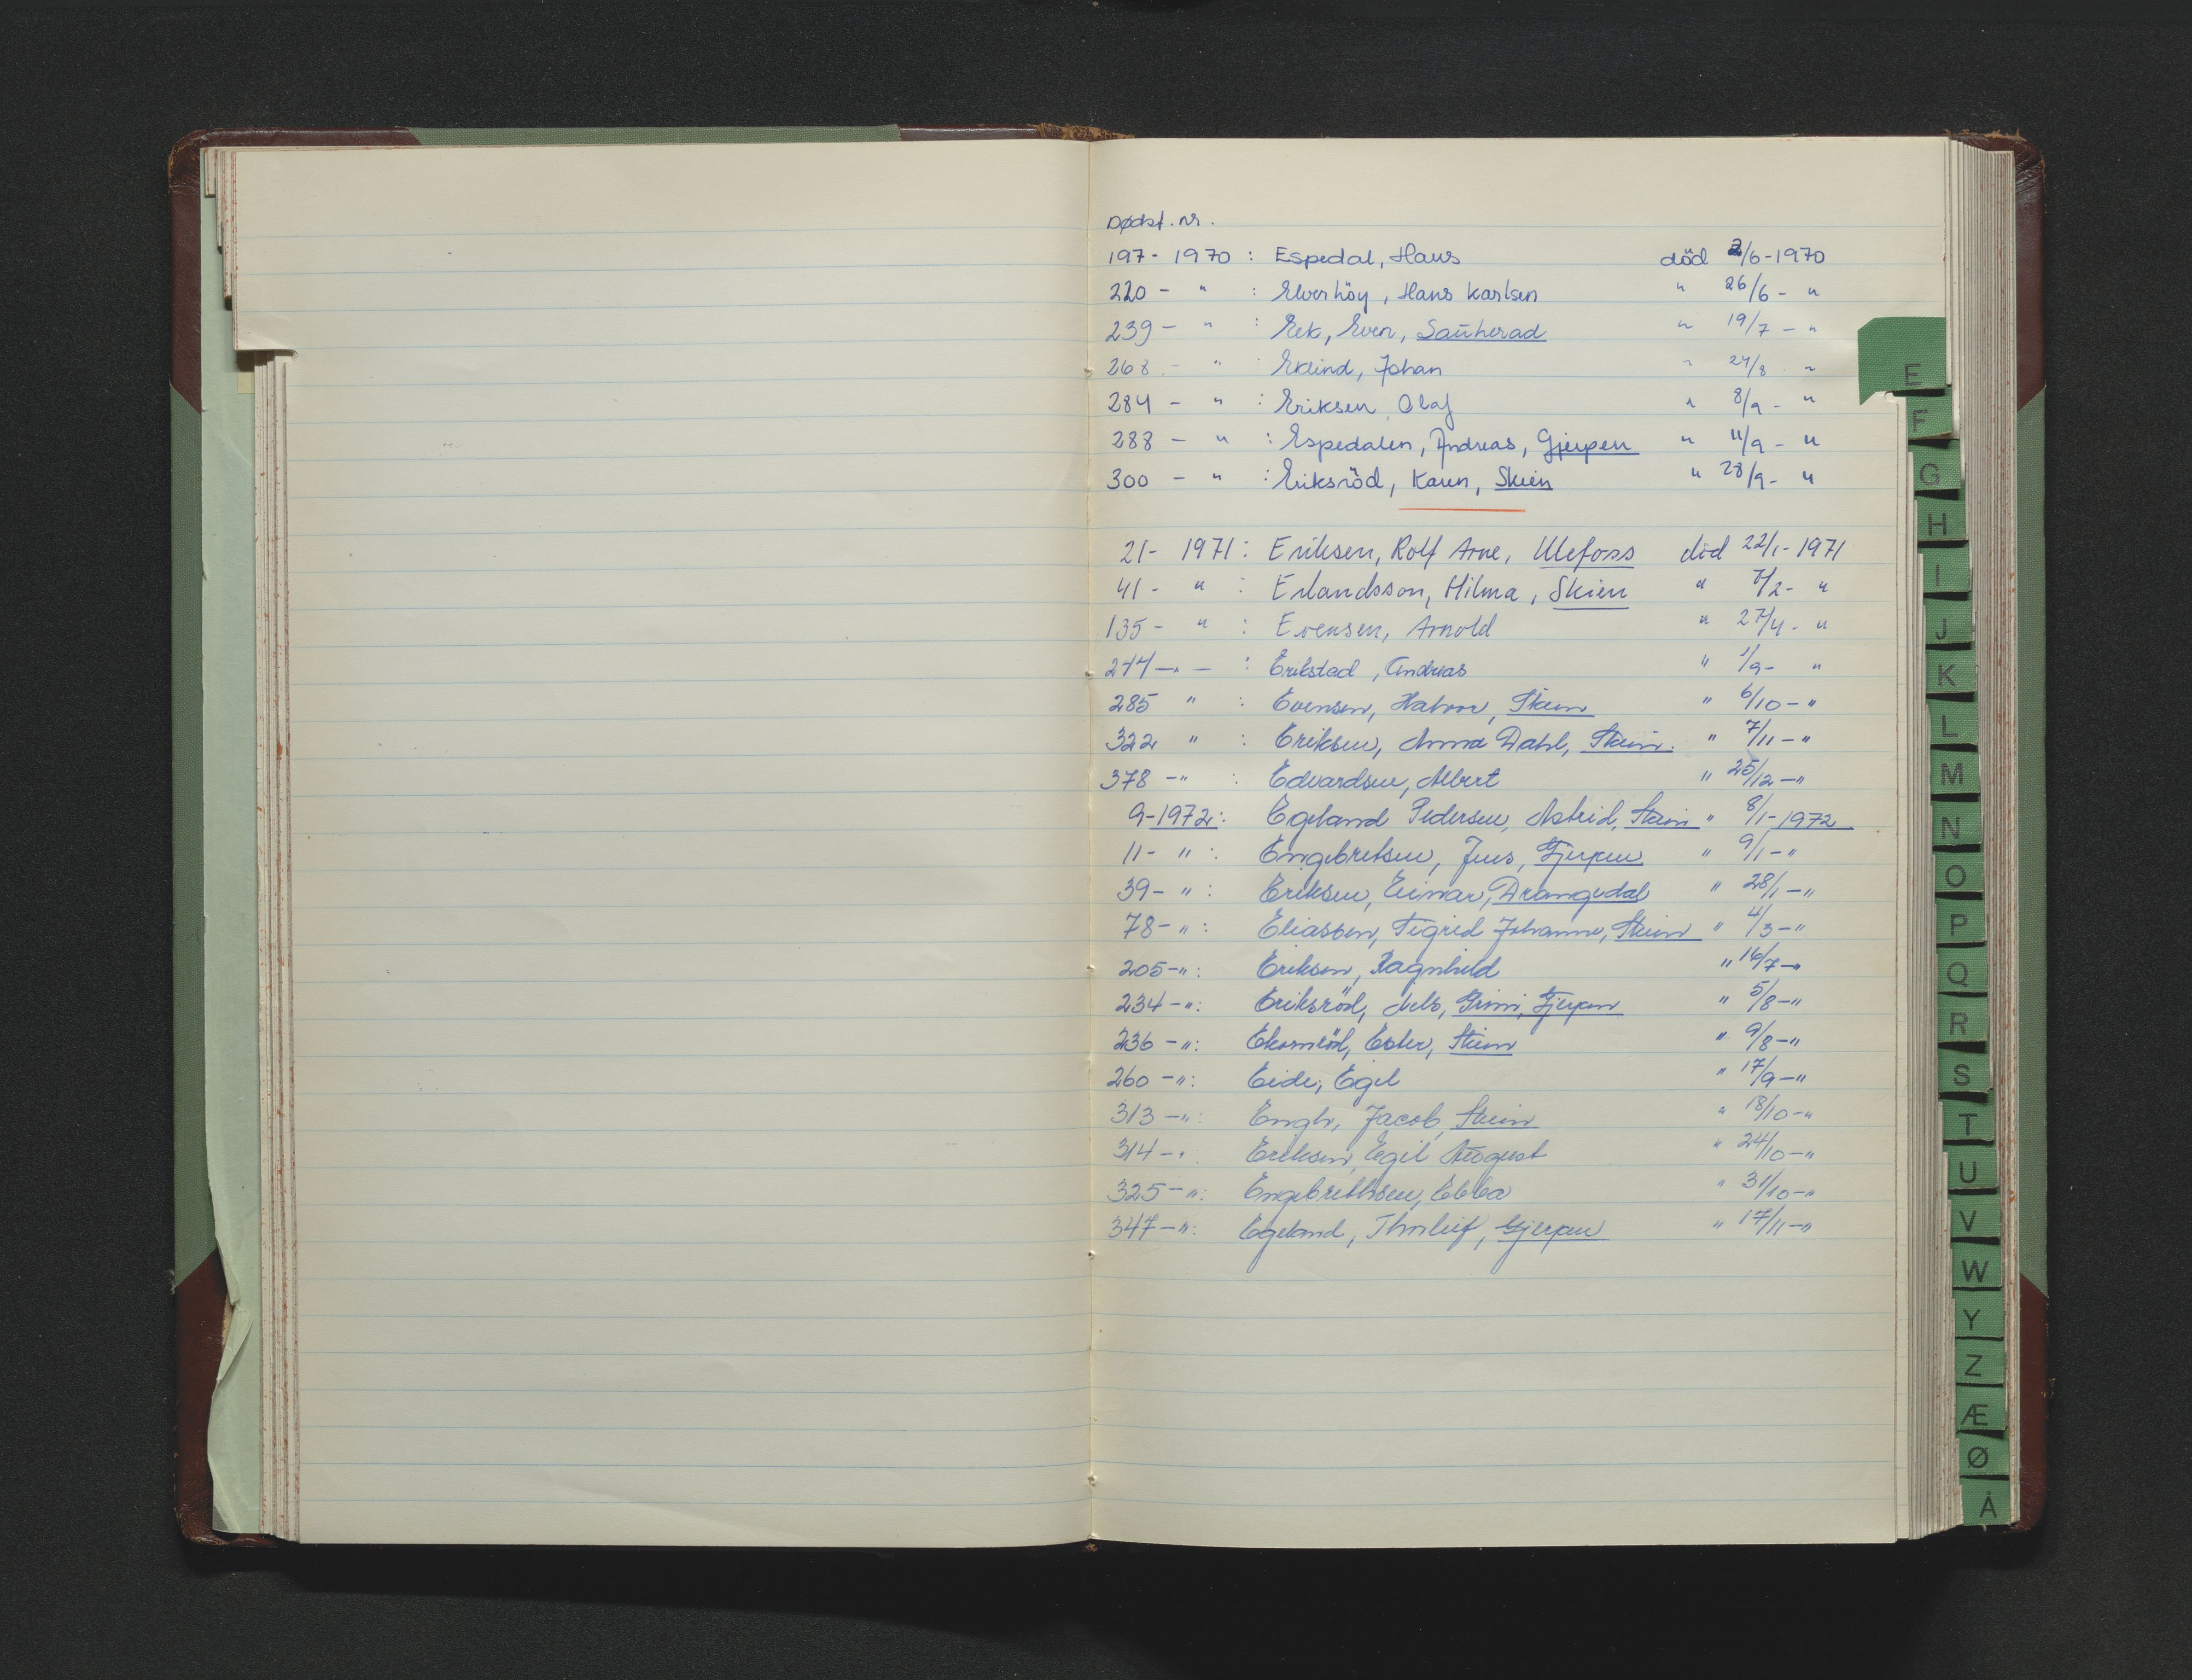 Dødsf. nr.
197 - 1970 : Espedal, Hans död 2/6 - 1970
220 - " : Elverhöy, Hans Karlsen " 26/6 - "
239 - " : Eek, Even, Sauherad " 19/7 - "
268 - " : Eklind, Johan " 24/8 "
284 - " : Eriksen, Olaf " 8/9 - "
288 - " : Espedalen, Andreas, Gjerpen " 11/9 - "
300 - " : Eriksröd, Karen, Skien " 28/9 - "
21 - 1971 : Eriksen, Rolf Arne, Ulefoss död 22/1 - 1971
41 - " : Erlandsson, Hilma, Skien " 7/2 - "
135 - " : Evensen, Arnold " 27/4 - "
244 - " - : Erikstad, Andreas " 1/9 - "
285 " : Evensen, Halvor, Skien " 6/10 - "
322 " : Eriksen, Anna Dahl, Skien. " 7/11 - "
378 - " : Edvardsen, Albert " 25/12 - "
9 - 1972 : Egeland Pedersen, Astrid, Skien " 8/1 - 1972
11 - " : Engebretsen, Jens, Gjerpen " 9/1 - "
39 - " : Eriksen, Einar, Drangedal " 28/1 - "
78 - " : Eliassen, Sigrid Johanne, Skien " 4/3 - "
205 - " : Eriksen, Ragnhild " 16/7 - "
234 - " : Eriksröd, Nels, Gjerpen " 5/8 - "
236 - " : Ester, Skien " 9/8 - "
260 - " : Eide, Egil " 17/9 - "
313 - " : Engh, Jacob, Skien " 18/10 - "
314 - " Eriksen, Egil August " 24/10 - "
325 - " : Engebrethsen, Ebba " 31/10 - "
347 - " : Egeland, Thorleif, Gjerpen " 17/11 - "
E
F
G
H
I
J
K
L
M
N
O
P
Q
R
S
T
U
V
W
Y
Z
Æ
Ø
Å